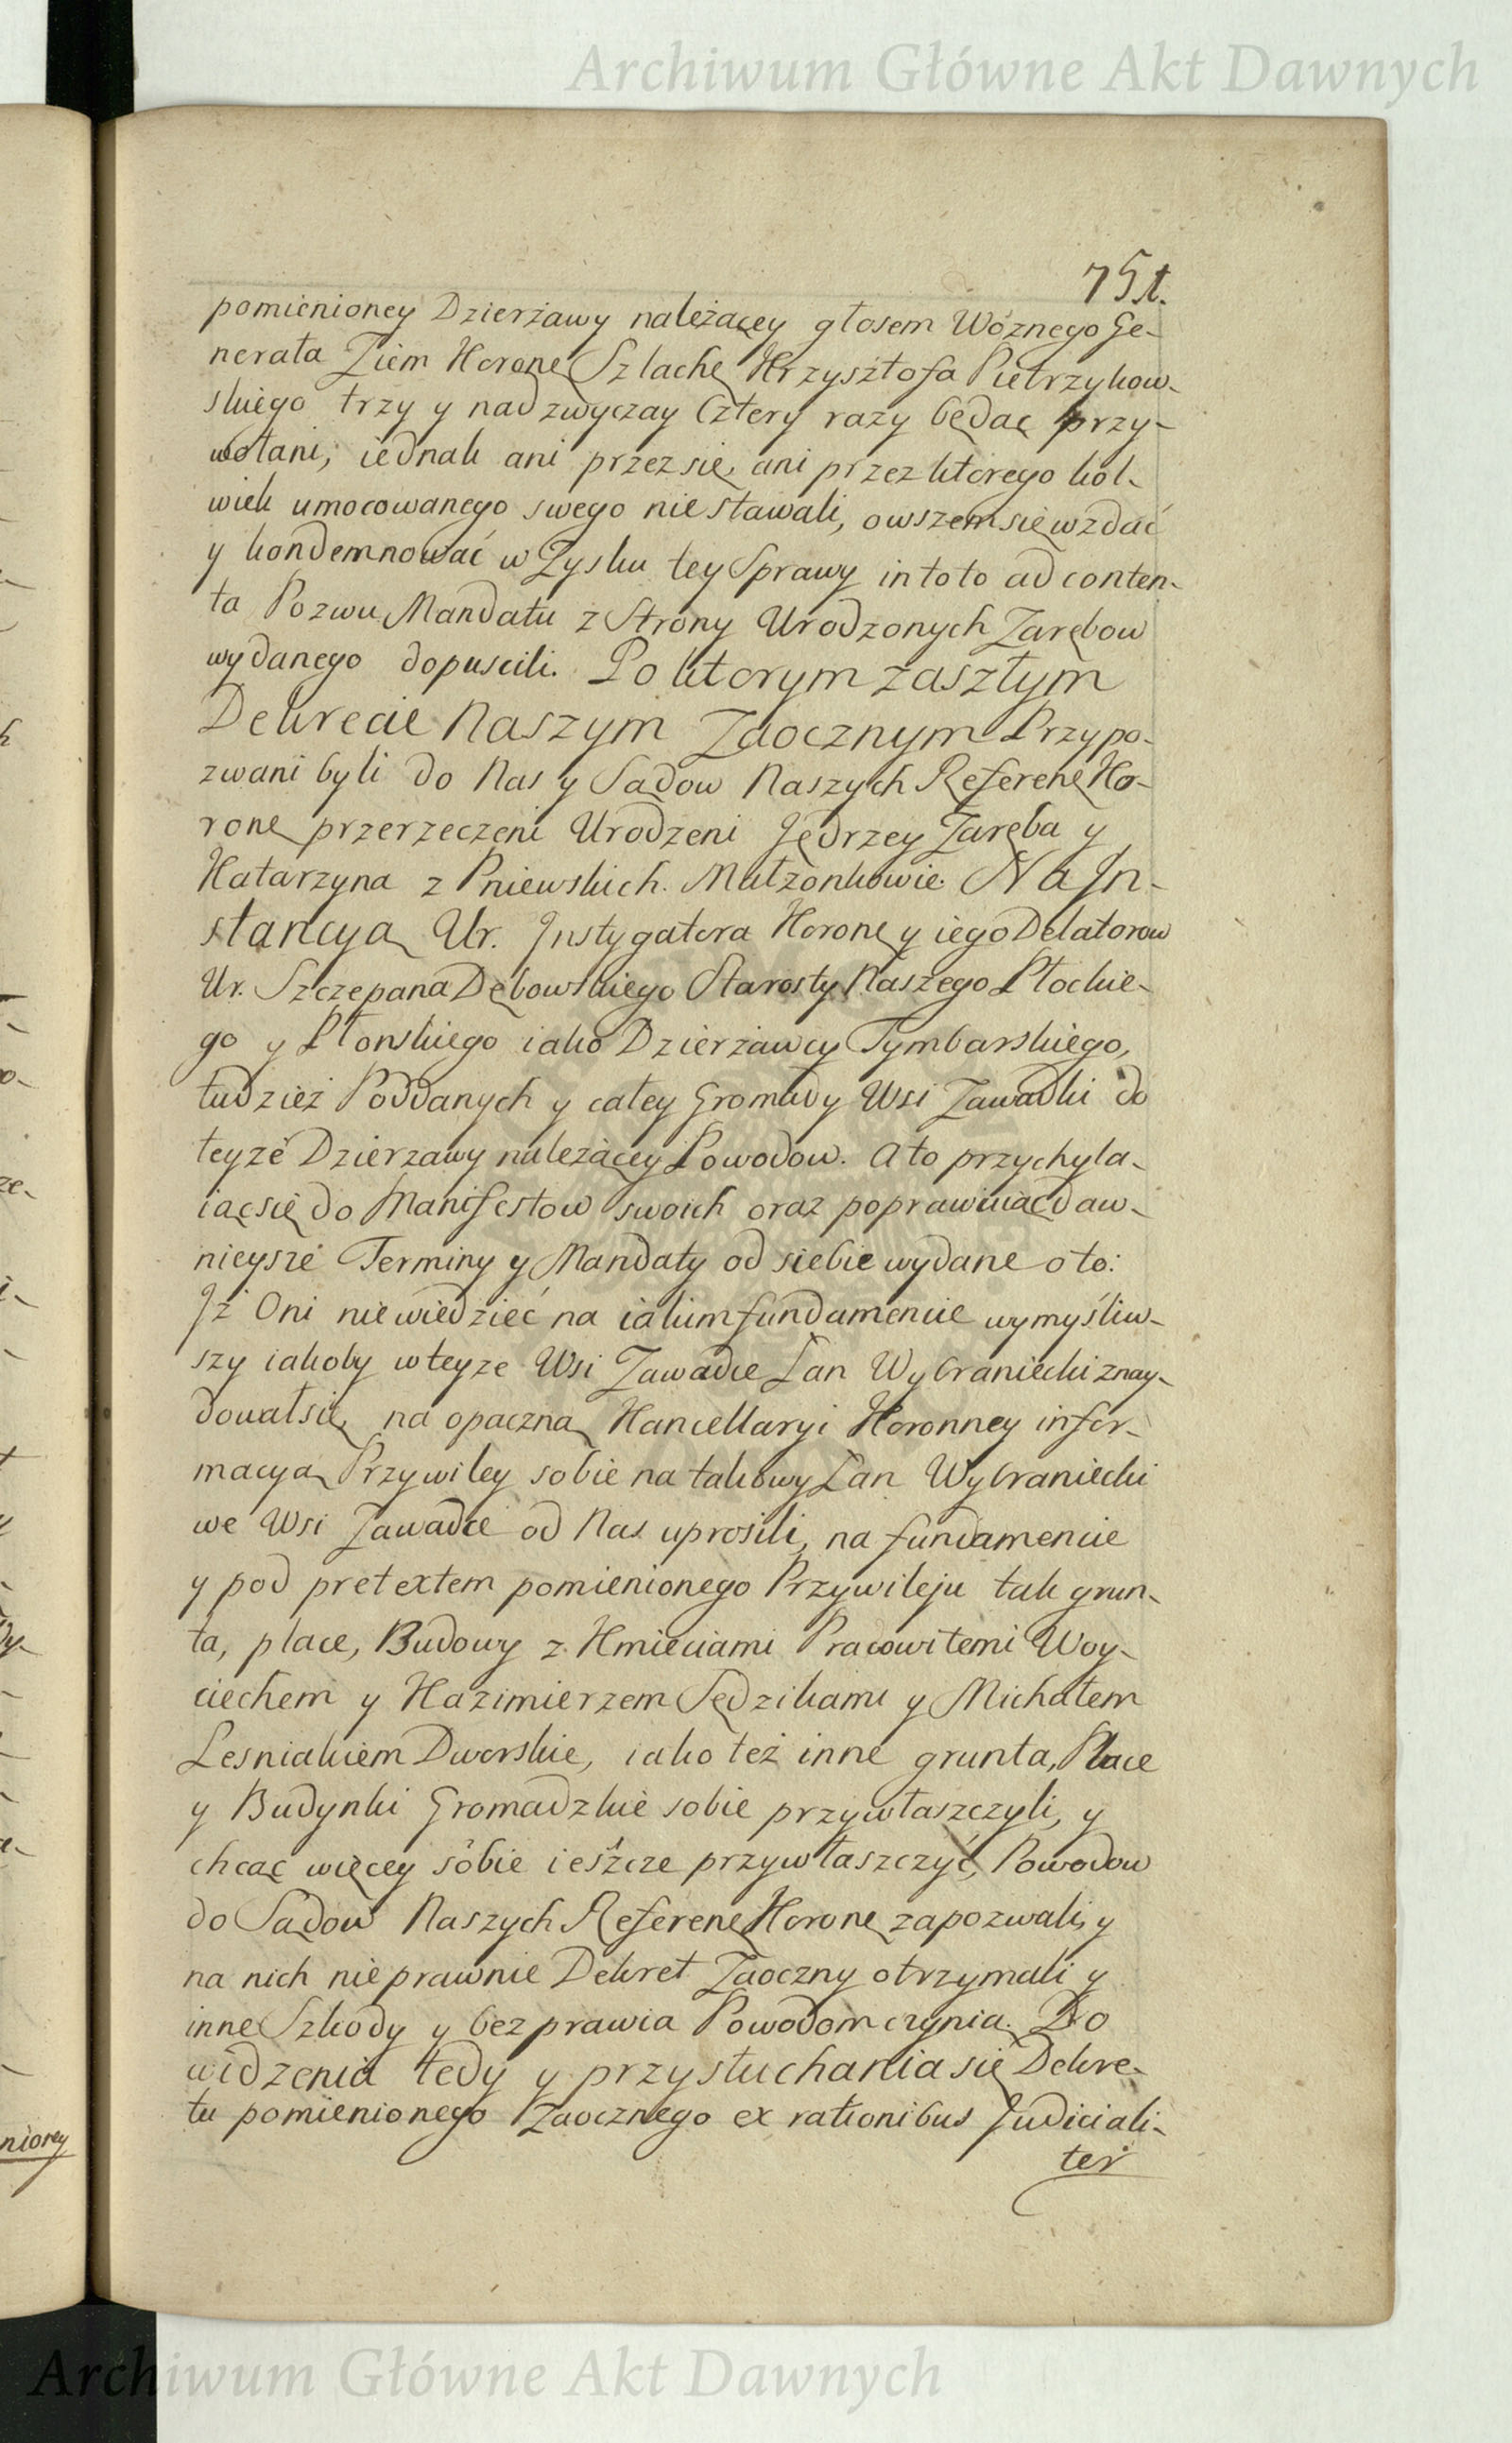 Archiwum Główne Akt Dawnych
751.
pomienioney Dzierżawy należącey głosem Woznego Ge-
nerała Ziem Koronę Szlachę Krzysztofa Pietrzykow-
skiego trzy y nadzwyczay Cztery razy będąc przy-
wołani, iednak ani przez się, ani przez ktorego kol-
wiek umocowanego swego nie stawali, owszem się wzdać
y kondemnować w Zysku tey Sprawy in toto ad conten-
ta Pozwu Mandatu z Strony Urodzonych Zarębow
wydanego dopuscili. Po ktorym zaszłym
Dekrecie Naszym Zaocznym Przypo-
zwani byli do Nas y Sądow Naszych Referenę Ko-
ronę przerzeczeni Urodzeni Jędrzey Zaręba y
Katarzyna z Pniewskich Małzonkowie. Na In-
stancyą Ur. Instygatora Koronę y iego Delatorow
Ur. Szczepana Dębowskiego Starosty Naszego Płockie-
go y Płonskiego iako Dzierżawcy Tymbarskiego,
tudzież Poddanych y całey Gromady Wsi Zawadki do
teyże Dzierzawy należącey Powodow. A to przychyla-
iąc się do Manifestow swoich oraz poprawuiąc daw-
nieysze Terminy y Mandaty od siebie wydane o to:
Iż Oni niewiedzieć na iakim fundamencie wymyśliw-
szy iakoby w teyze Wsi Zawadce Łan Wybraniecki znay-
dował się, na opaczną Kancellaryi Koronney infor-
macyą Przywiley sobie na takowy Łan Wybraniecki
we Wsi Zawadce od Nas uprosili, na fundamencie
y pod pretextem pomienionego Przywileju tak grun-
ta, place, Budowy z Kmieciami Pracowitemi Woy-
ciechem y Kazimierzem Sędzikami y Michałem
Lesniakiem Dworskie, iako też inne grunta, Place
y Budynki Gromadzkie sobie przywłaszczyli, y
chcąc więcey sobie ieszcze przywłaszczyć, Powodow
do Sądow Naszych Referenę Koronę zapozwali, y
na nich nieprawnie Dekret Zaoczny otrzymali y
inne Szkody y bezprawia Powodom czynią. Do
widzenia tedy y przysłuchania się Dekre-
tu pomienionego Zaocznego ex rationibus Judiciali-
ter
niorey
Archiwum Główne Akt Dawnych